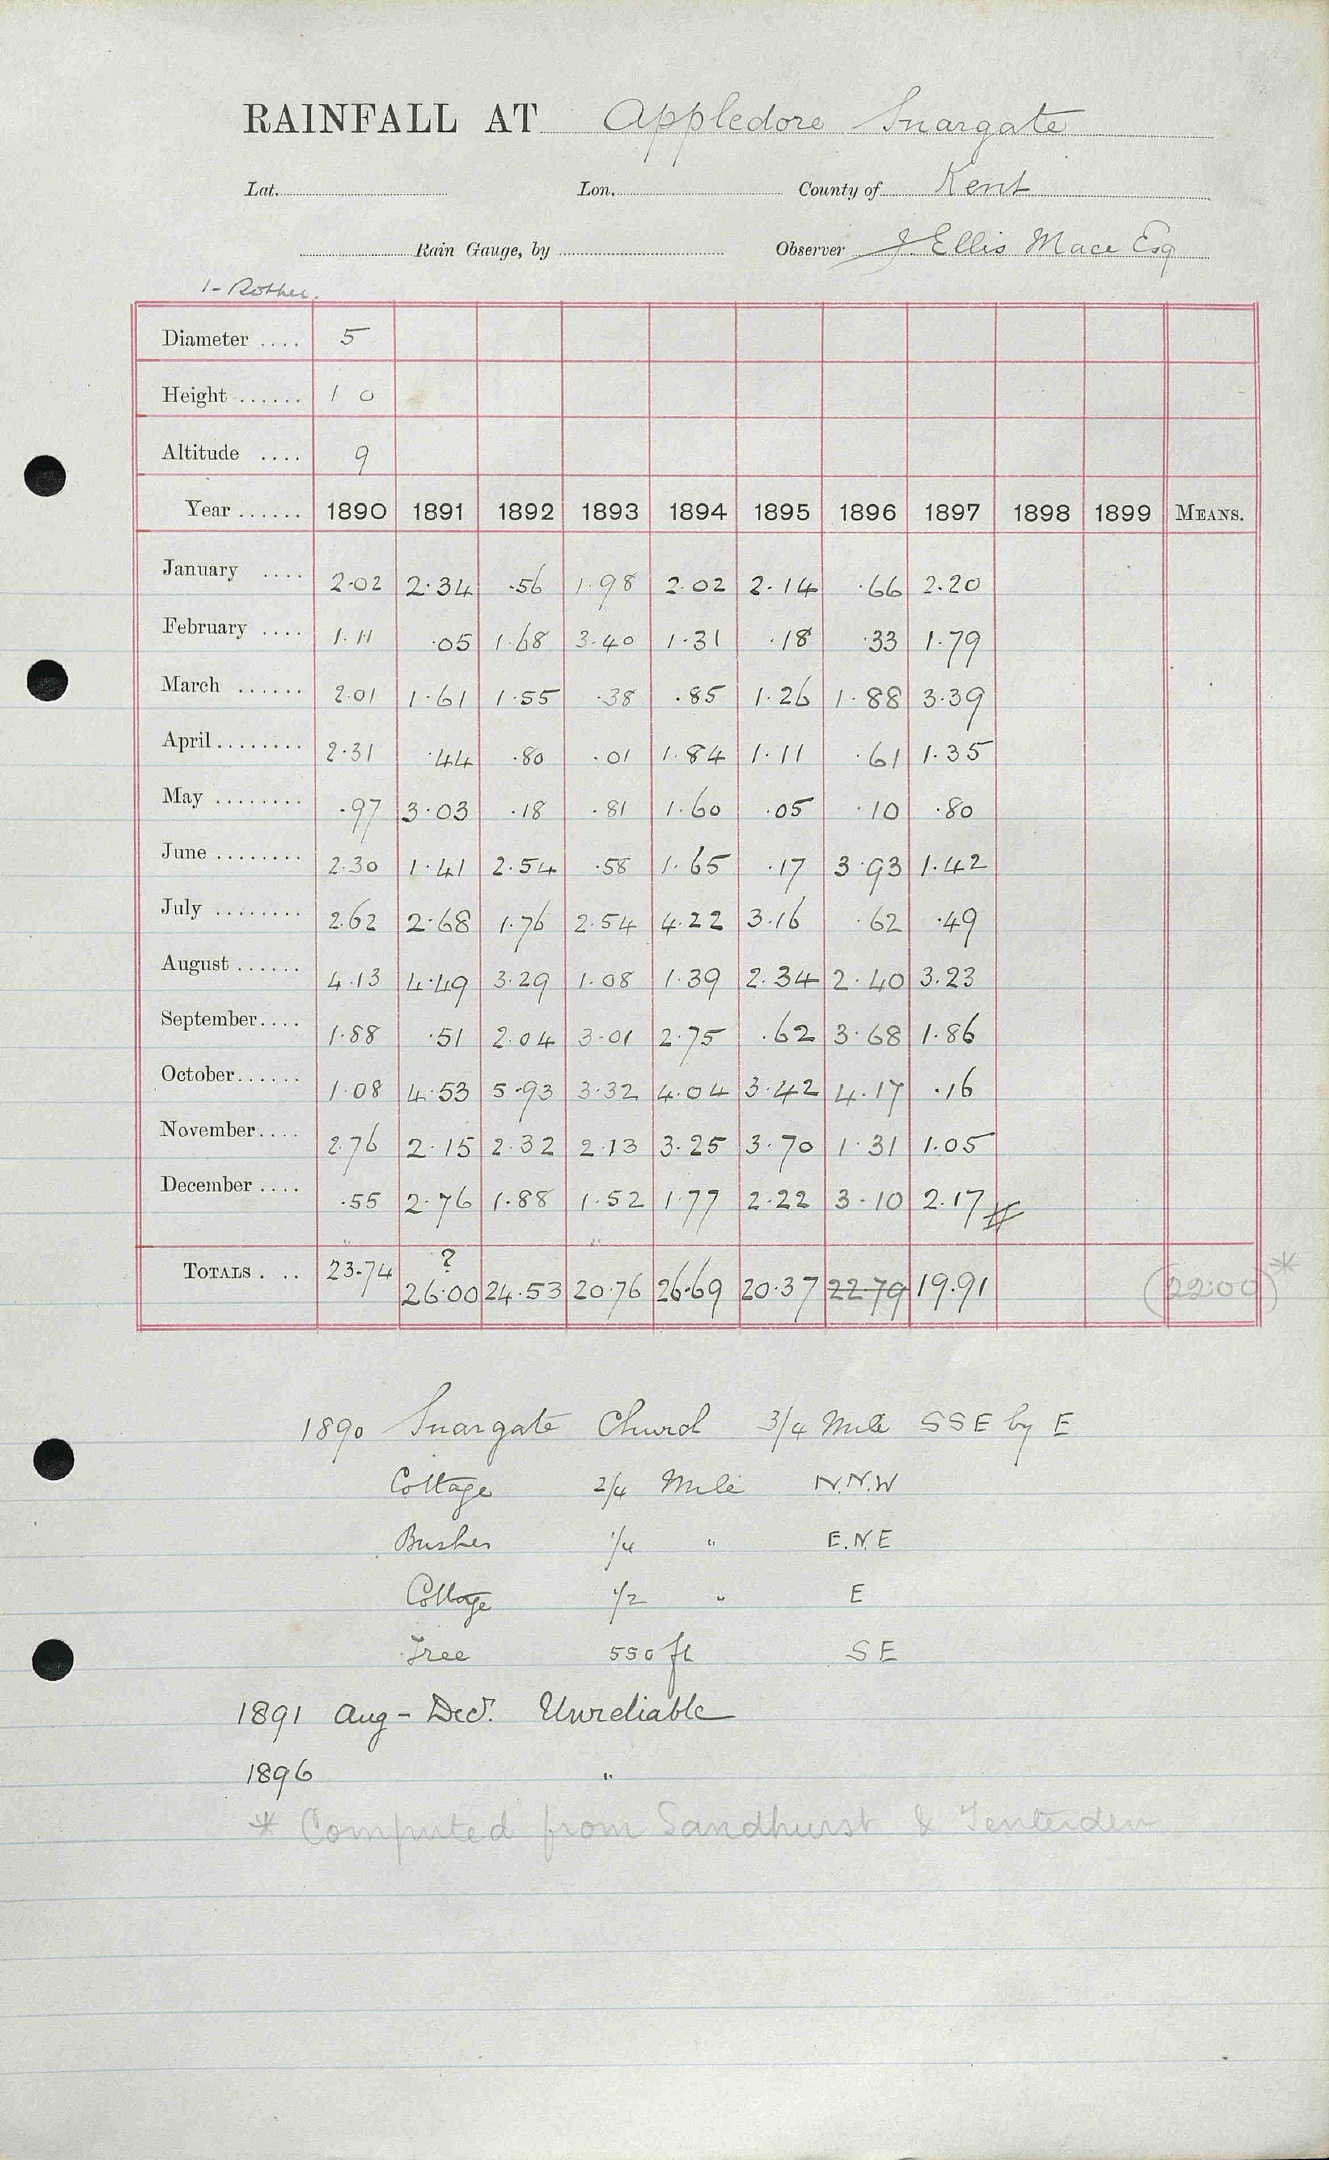 RAINFALL AT Appledore Snargate
Lat. Lon. County of Kent
Rain Gauge, by Observer J. Ellis Mace Esq
1- Rother.
Diameter .... 5
Height ...... 1 0
Altitude .... 9
Year ...... 1890 1891 1892 1893 1894 1895 1896 1897 1898 1899 MEANS.
January .... 2.02 2.34 .56 1.98 2.02 2.14 .66 2.20
February .... 1.11 .05 1.68 3.40 1.31 .18 .33 1.79
March ...... 2.01 1.61 1.55 .38 .85 1.26 1.88 3.39
April ........ 2.31 .44 .80 .01 1.84 1.11 .61 1.35
May ........ .97 3.03 .18 .81 1.60 .05 .10 .80
June ........ 2.30 1.41 2.54 .58 1.65 .17 3.93 1.42
July ........ 2.62 2.68 1.76 2.54 4.22 3.16 .62 .49
August ...... 4.13 4.49 3.29 1.08 1.39 2.34 2.40 3.23
September.... 1.88 .51 2.04 3.01 2.75 .62 3.68 1.86
October...... 1.08 4.53 5.93 3.32 4.04 3.42 4.17 .16
November.... 2.76 2.15 2.32 2.13 3.25 3.70 1.31 1.05
December .... .55 2.76 1.88 1.52 1.77 2.22 3.10 2.17 #
TOTALS . .. 23.74 ? 26.00 24.53 20.76 26.69 20.37 22.79 19.91 (22.00)*
1890 Snargate Church 3/4 Mile SSE by E
Cottage 2/4 Mile N.N.W
Bushes 1/4 " E.N.E
Cottage 1/2 " E
Tree 550 ft SE
1891 Aug - Decr. Unreliable
1896 "
* Computed from Sandhurst & Tenterden